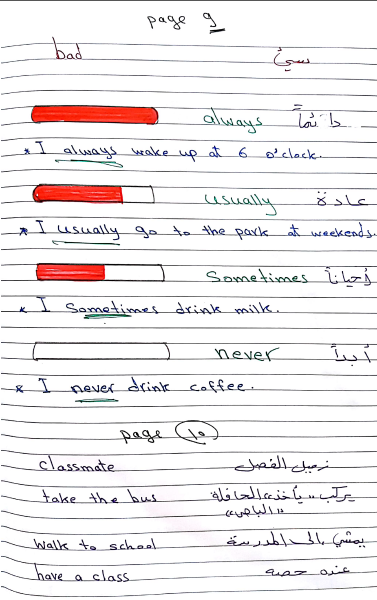 page 9
bad سيئ
always دائماً
* I always wake up at 6 o'clock.
usually عادة
* I usually go to the park at weekends.
Sometimes أحياناً
* I Sometimes drink milk.
never أبداً
* I never drink coffee.
page ١٠
classmate زميل الفصل
take the bus يركب،، يأخذ،، الحافلة
"الباص"
Walk to school يمشي إلى المدرسة
have a class عنده حصه